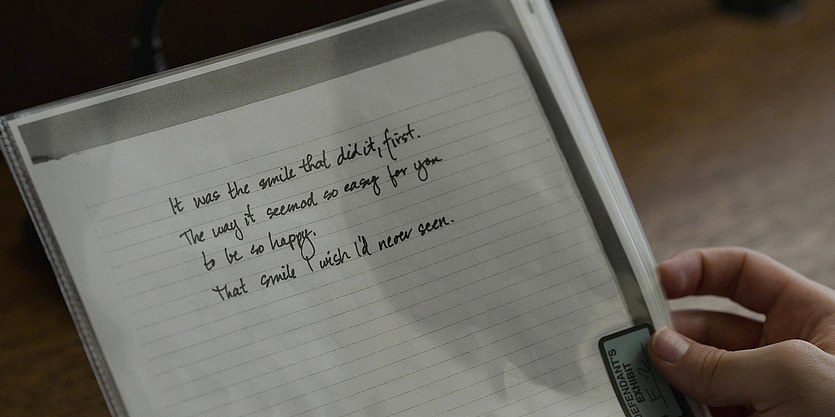 It was the smile that did it, first.
The way it seemed so easy for you
to be so happy.
That smile I wish I'd never seen.
DEFENDANT'S
EXHIBIT